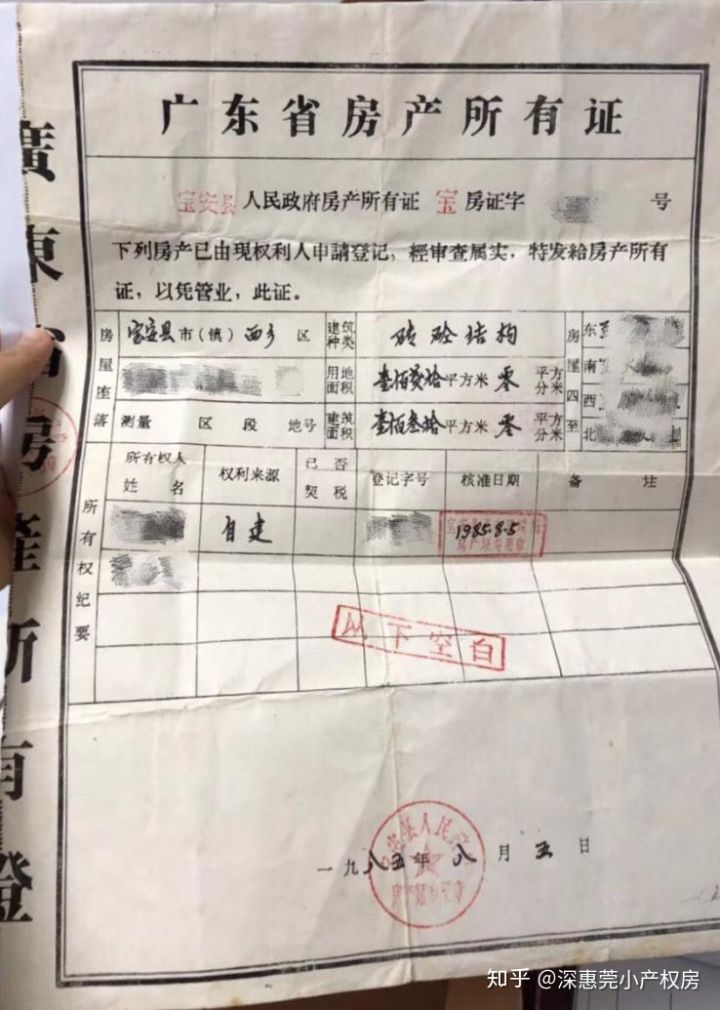 广东省房产所有证
宝安县人民政府房产所有证 宝 房证字 号
下列房产已由现权利人申請登记，經审查属实，特发給房产所有
证，以凭管业，此证。
房屋座落 宝安县市(镇)西乡区 建筑种类 砖砼结构 房屋四至 东
用地面积 平方米 零 平方分米 南
西
测量 区 段 地号 建筑面积 壹佰叁拾平方米 零 平方分米 北
所有权纪要 所有权人姓名 权利来源 已否契税 登记字号 核准日期 备 注
自建 1985.8.5
以下空白
一九八五年八月五日
廣東省房產所有證
知乎 @深惠莞小产权房